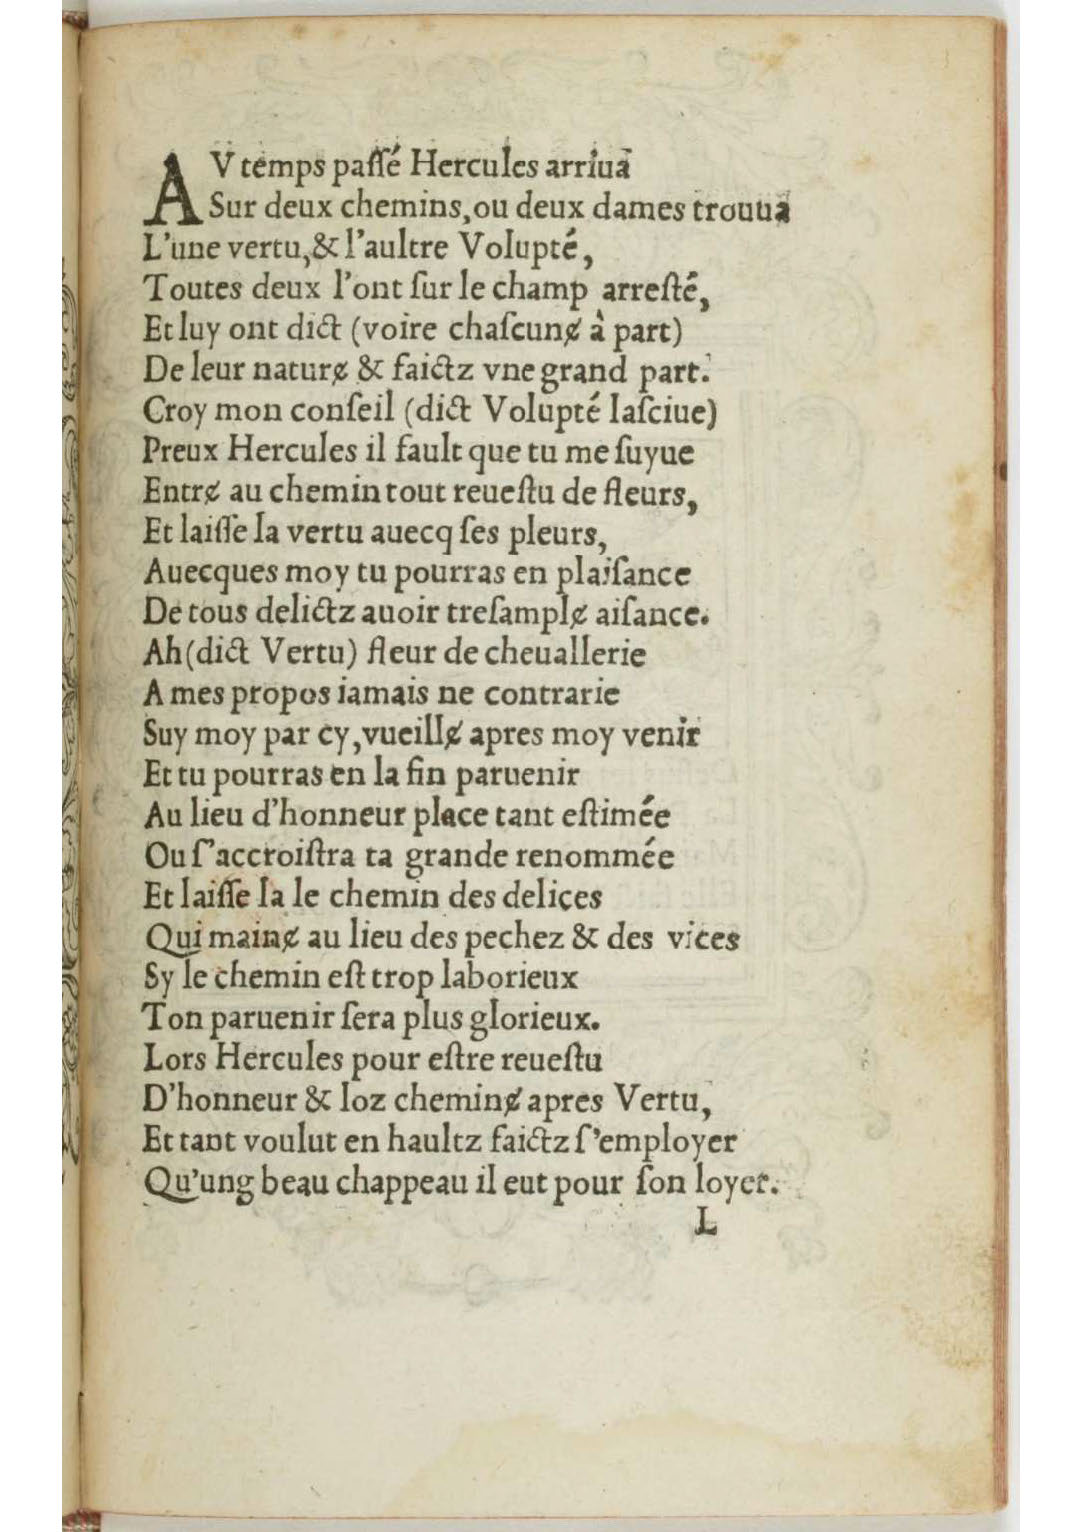 AV temps paſſé Hercules arriua
Sur deux chemins, ou deux dames trouua
L'une vertu, & l'aultre Volupté,
Toutes deux l'ont ſur le champ arreſté,
Et luy ont dict (voire chaſcunɇ à part)
De leur naturɇ & faictz vne grand part.
Croy mon conſeil (dict Volupté laſciue)
Preux Hercules il fault que tu me ſuyue
Entrɇ au chemin tout reueſtu de fleurs,
Et laiſſe la vertu auecq ſes pleurs,
Auecques moy tu pourras en plaiſance
De tous delictz auoir treſamplɇ aiſance.
Ah (dict Vertu) fleur de cheuallerie
A mes propos iamais ne contrarie
Suy moy par cy, vueillɇ apres moy venir
Et tu pourras en la fin paruenir
Au lieu d'honneur place tant eſtimée
Ou ſ'accroiſtra ta grande renommée
Et laiſſe la le chemin des delices
Qui mainɇ au lieu des pechez & des vices
Sy le chemin eſt trop laborieux
Ton paruenir ſera plus glorieux.
Lors Hercules pour eſtre reueſtu
D'honneur & loz cheminɇ apres Vertu,
Et tant voulut en haultz faictz ſ'employer
Qu'ung beau chappeau il eut pour ſon loyer.
L